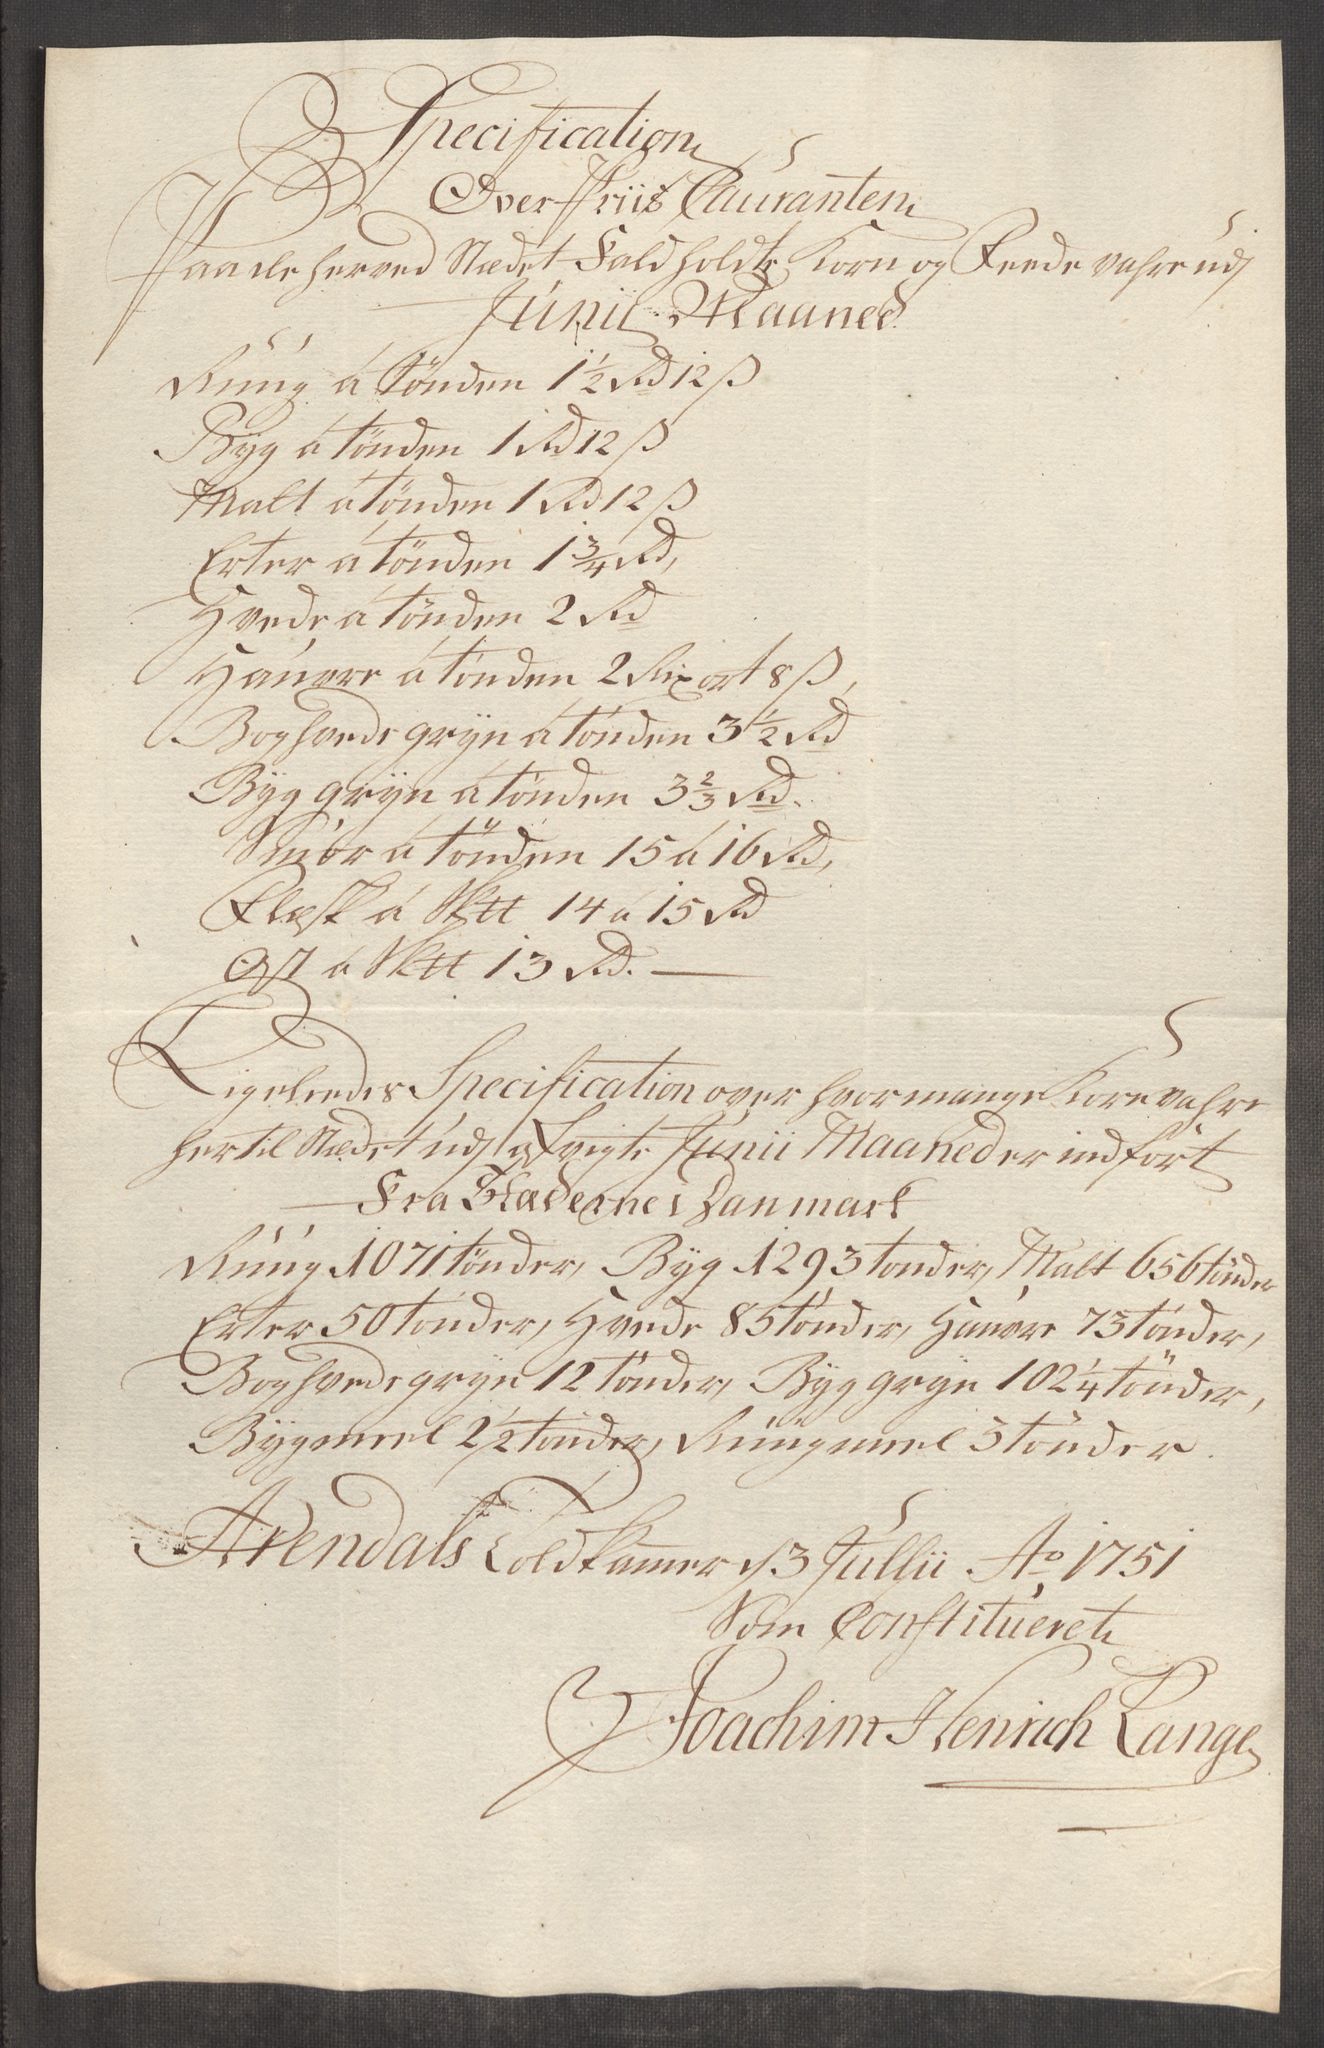 Specification
Over Priis Couranten
Paa de her ved Stædet Fald holdte Korn og Feede vahre udj
Junii Maaned
Rúúg á tönden 1 1/2 Rd 12 ß
Byg á tönden 1 Rd 12 ß
Malt á tönden 1 Rd 12 ß
Erter á tönden 1 3/4 Rd,
Hvede á tönden 2 Rd
Haúvre á tönden 2 Rixort 8 ß,
Boghvede gryn á tönden 3 1/2 Rd
Byg gryn á tönden 3 2/3 Rd.
Smör á tönden 15 á 16 Rd,
Flesk á Sk℔ 14 á 15 Rd
Ost á Sk℔ 13 Rd.
Ligeleedes Specification over hvormange Korn vahre
hertil Stædet udj afvigte Junii Maaned er indført
Fra Stæderne i Danmark
Rúúg 1071 tönder, Byg 1293 tönder, Malt 656 tönder
Erter 50 tönder, Hvede 85 tönder, Haúvre 73 tönder,
Boghvede gryn 12 tönder, Byg gryn 102 1/4 tönder,
Bygmeel 2 1/2 tönder, Rúúgmeel 5 tönder.
Arendals Toldkamer d 3 Jullii Ao 1751
Som Constitúeret
Joachim Henrich Lange